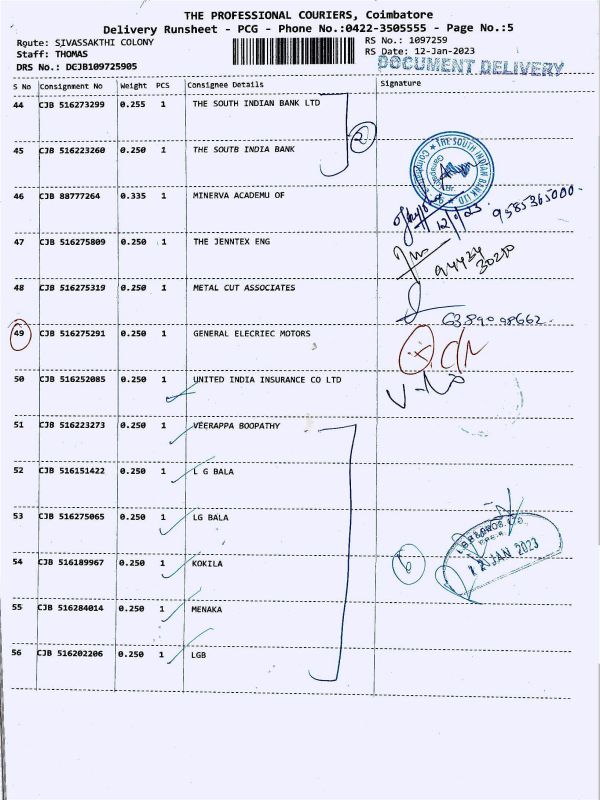 THE PROFESSIONAL COURIERS, Coimbatore
Delivery Runsheet - PCG - Phone No.:0422-3505555 - Page No.:5
Route: SIVASSAKTHI COLONY RS No.: 1097259
Staff: THOMAS RS Date: 12-Jan-2023
DRS No.: DCJB109725905 DOCUMENT DELIVERY
S No Consignment No Weight PCS Consignee Details Signature
44 CJB 516273299 0.255 1 THE SOUTH INDIAN BANK LTD
2
45 CJB 516223260 0.250 1 THE SOUTB INDIA BANK
THE SOUTH INDIAN BANK LTD
46 CJB 88777264 0.335 1 MINERVA ACADEMU OF
12/1/23 9585365000
47 CJB 516275809 0.250 1 THE JENNTEX ENG
94424
30210
48 CJB 516275319 1 0.250 METAL CUT ASSOCIATES
6389098662
49 CJB 516275291 0.250 1 GENERAL ELECRIEC MOTORS
50 CJB 516252085 0.250 1 UNITED INDIA INSURANCE CO LTD
51 CJB 516223273 0.250 1 VEERAPPA BOOPATHY
52 CJB 516151422 0.250 1 L G BALA
53 CJB 516275065 0.250 1 LG BALA
12 JAN 2023
54 CJB 516189967 0.250 1 KOKILA
6
55 CJB 516284014 0.250 1 MENAKA
56 CJB 516202206 0.250 1 LGB